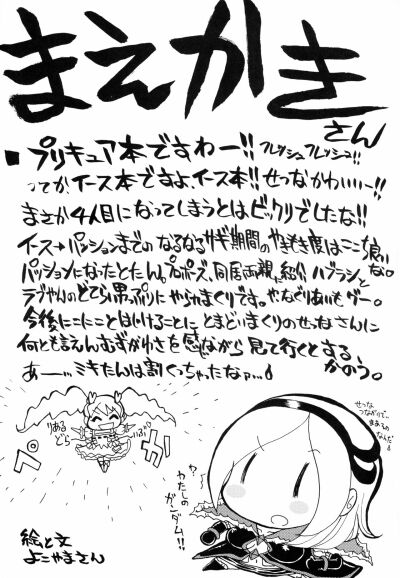 まえかき
さん
■プリキュア本ですわー!!フレッシュフレッシュ!!
ってかイース本ですよ、イース本!!せつなかわいいー!!
まさか4人目になってしまうとはビックリでしたな!!
イース→パッションまでのなるなるサギ期間のやきもき度はここち良いな。
パッションになったとたん。プロポーズ、同居、両親に紹介、ハブラシ、と
ラブやんのどてら男っぷりにやられまくりです。やなどりあいもゲー。
今後にこにことはじけることにとまどいまくりのせつなさんに
何とも言えんむずがゆさを感ぜながら見て行くとする、
かのう。
あー…、ミキたんは割くっちゃたなァ…
せつな
つながりで…
まあその
なんだ
りある
どら
ぱい
ペ
か
わ、
わたしの
ガンダム!!
絵と文
よこやまさん